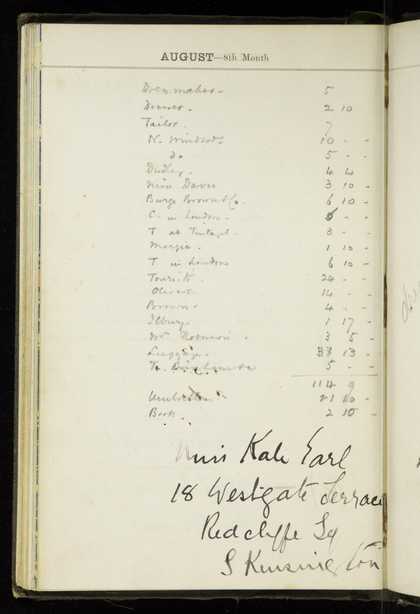 AUGUST—8th Month
Dressmaker - 5
Dinner - 2 10
Tailor - 7
N. Windsor - 10 - -
Do 5 - -
Dudley - 4 4
Miss Davies 3 10 -
Burge Brown & Co. 6 10 -
C. in London - - -
T at Tintagel - 3 - -
Margie - 1 10 -
T in London 6 10 -
Tourists - 24 - -
Oliver 14 - -
Brown 4 - -
Ilbury 1 17 -
3 5 -
Luggage - 13 -
To 5 - -
114 9
10 -
Book 2 10 -
Miss Kate Earl
18 Westgate Terrace
Redcliffe Sq
S Kensington